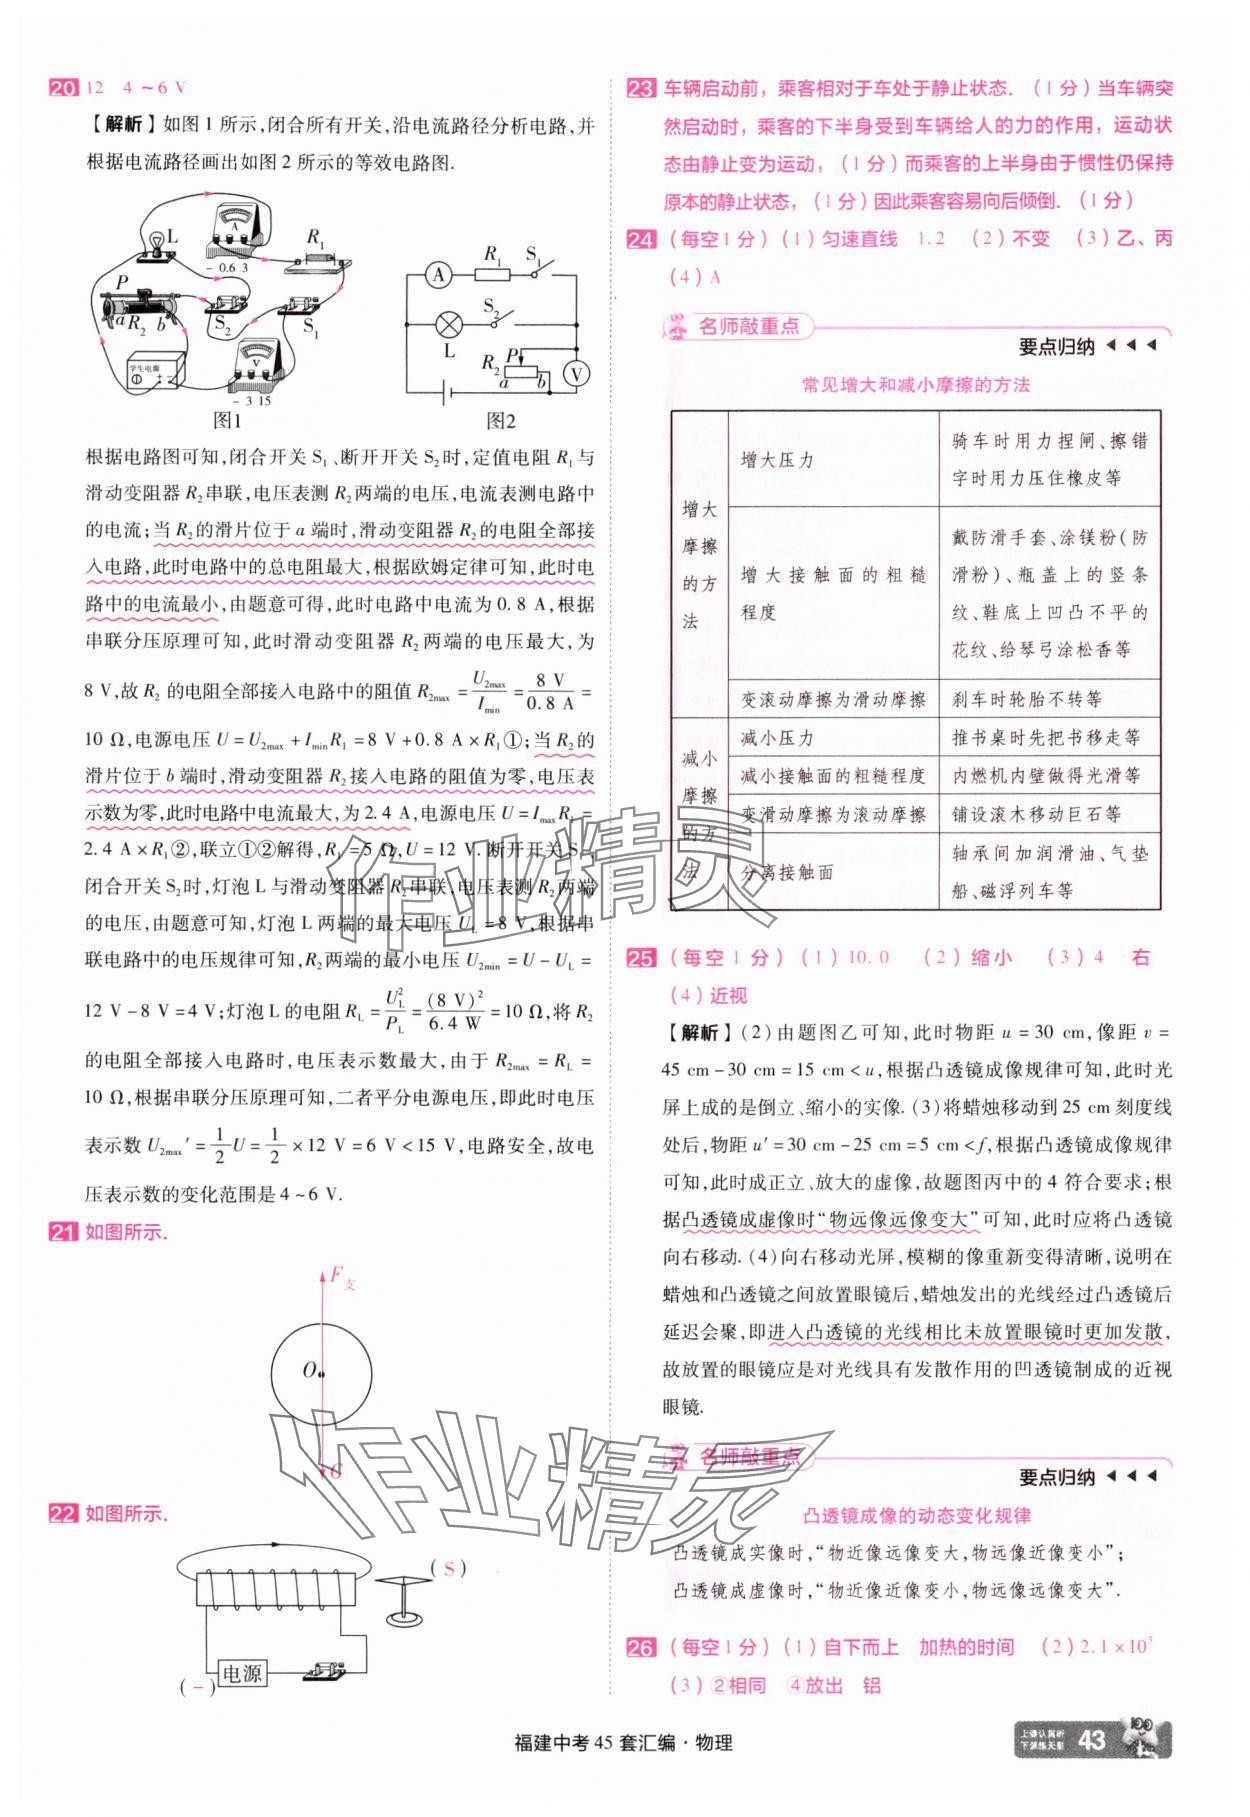 20 12 4~6 V
【解析】如图1所示,闭合所有开关,沿电流路径分析电路,并
根据电流路径画出如图2所示的等效电路图.
L
A
R₁
- 0.6 3
P
a R₂ b
S₂
S₁
学生电源
+ -
V
- 3 15
图1
A
R₁
S₁
S₂
L
R₂
P
a b
V
图2
根据电路图可知,闭合开关S₁、断开开关S₂时,定值电阻R₁与
滑动变阻器R₂串联,电压表测R₂两端的电压,电流表测电路中
的电流;当R₂的滑片位于a端时,滑动变阻器R₂的电阻全部接
入电路,此时电路中的总电阻最大,根据欧姆定律可知,此时电
路中的电流最小,由题意可得,此时电路中电流为0.8 A,根据
串联分压原理可知,此时滑动变阻器R₂两端的电压最大,为
8 V,故R₂的电阻全部接入电路中的阻值R₂max=U₂max/Imin=8 V/0.8 A=
10 Ω,电源电压U=U₂max+IminR₁=8 V+0.8 A×R₁①;当R₂的
滑片位于b端时,滑动变阻器R₂接入电路的阻值为零,电压表
示数为零,此时电路中电流最大,为2.4 A,电源电压U=ImaxR₁=
2.4 A×R₁②,联立①②解得,R₁=5 Ω,U=12 V.断开开关S₁、
闭合开关S₂时,灯泡L与滑动变阻器R₂串联,电压表测R₂两端
的电压,由题意可知,灯泡L两端的最大电压U_L=8 V,根据串
联电路中的电压规律可知,R₂两端的最小电压U₂min=U-U_L=
12 V-8 V=4 V;灯泡L的电阻R_L=U_L²/P_L=(8 V)²/6.4 W=10 Ω,将R₂
的电阻全部接入电路时,电压表示数最大,由于R₂max=R_L=
10 Ω,根据串联分压原理可知,二者平分电源电压,即此时电压
表示数U₂max′=1/2U=1/2×12 V=6 V<15 V,电路安全,故电
压表示数的变化范围是4~6 V.
21 如图所示.
F支
O
G
22 如图所示.
(S)
电源
(-)
23 车辆启动前,乘客相对于车处于静止状态.(1分)当车辆突
然启动时,乘客的下半身受到车辆给人的力的作用,运动状
态由静止变为运动,(1分)而乘客的上半身由于惯性仍保持
原本的静止状态,(1分)因此乘客容易向后倾倒.(1分)
24 (每空1分)(1)匀速直线 1.2 (2)不变 (3)乙、丙
(4)A
名师敲重点
要点归纳
常见增大和减小摩擦的方法
增大摩擦的方法
增大压力
骑车时用力捏闸、擦错
字时用力压住橡皮等
增大接触面的粗糙
程度
戴防滑手套、涂镁粉(防
滑粉)、瓶盖上的竖条
纹、鞋底上凹凸不平的
花纹、给琴弓涂松香等
变滚动摩擦为滑动摩擦
刹车时轮胎不转等
减小摩擦的方法
减小压力
推书桌时先把书移走等
减小接触面的粗糙程度
内燃机内壁做得光滑等
变滑动摩擦为滚动摩擦
铺设滚木移动巨石等
分离接触面
轴承间加润滑油、气垫
船、磁浮列车等
25 (每空1分)(1)10.0 (2)缩小 (3)4 右
(4)近视
【解析】(2)由题图乙可知,此时物距u=30 cm,像距v=
45 cm-30 cm=15 cm<u,根据凸透镜成像规律可知,此时光
屏上成的是倒立、缩小的实像.(3)将蜡烛移动到25 cm刻度线
处后,物距u′=30 cm-25 cm=5 cm<f,根据凸透镜成像规律
可知,此时成正立、放大的虚像,故题图丙中的4符合要求;根
据凸透镜成虚像时“物远像远像变大”可知,此时应将凸透镜
向右移动.(4)向右移动光屏,模糊的像重新变得清晰,说明在
蜡烛和凸透镜之间放置眼镜后,蜡烛发出的光线经过凸透镜后
延迟会聚,即进入凸透镜的光线相比未放置眼镜时更加发散,
故放置的眼镜应是对光线具有发散作用的凹透镜制成的近视
眼镜.
名师敲重点
要点归纳
凸透镜成像的动态变化规律
凸透镜成实像时,“物近像远像变大,物远像近像变小”;
凸透镜成虚像时,“物近像近像变小,物远像远像变大”.
26 (每空1分)(1)自下而上 加热的时间 (2)2.1×10³
(3)②相同 ④放出 铝
作业精灵
作业精灵
福建中考45套汇编·物理
上课认真听
43
100